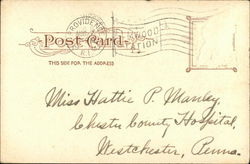 PROVIDENCE
R.I.
Post Card.
STATION
THIS SIDE FOR THE ADDRESS
Miss Hattie P. Manley,
Chester County Hospital,
Westchester, Penna.